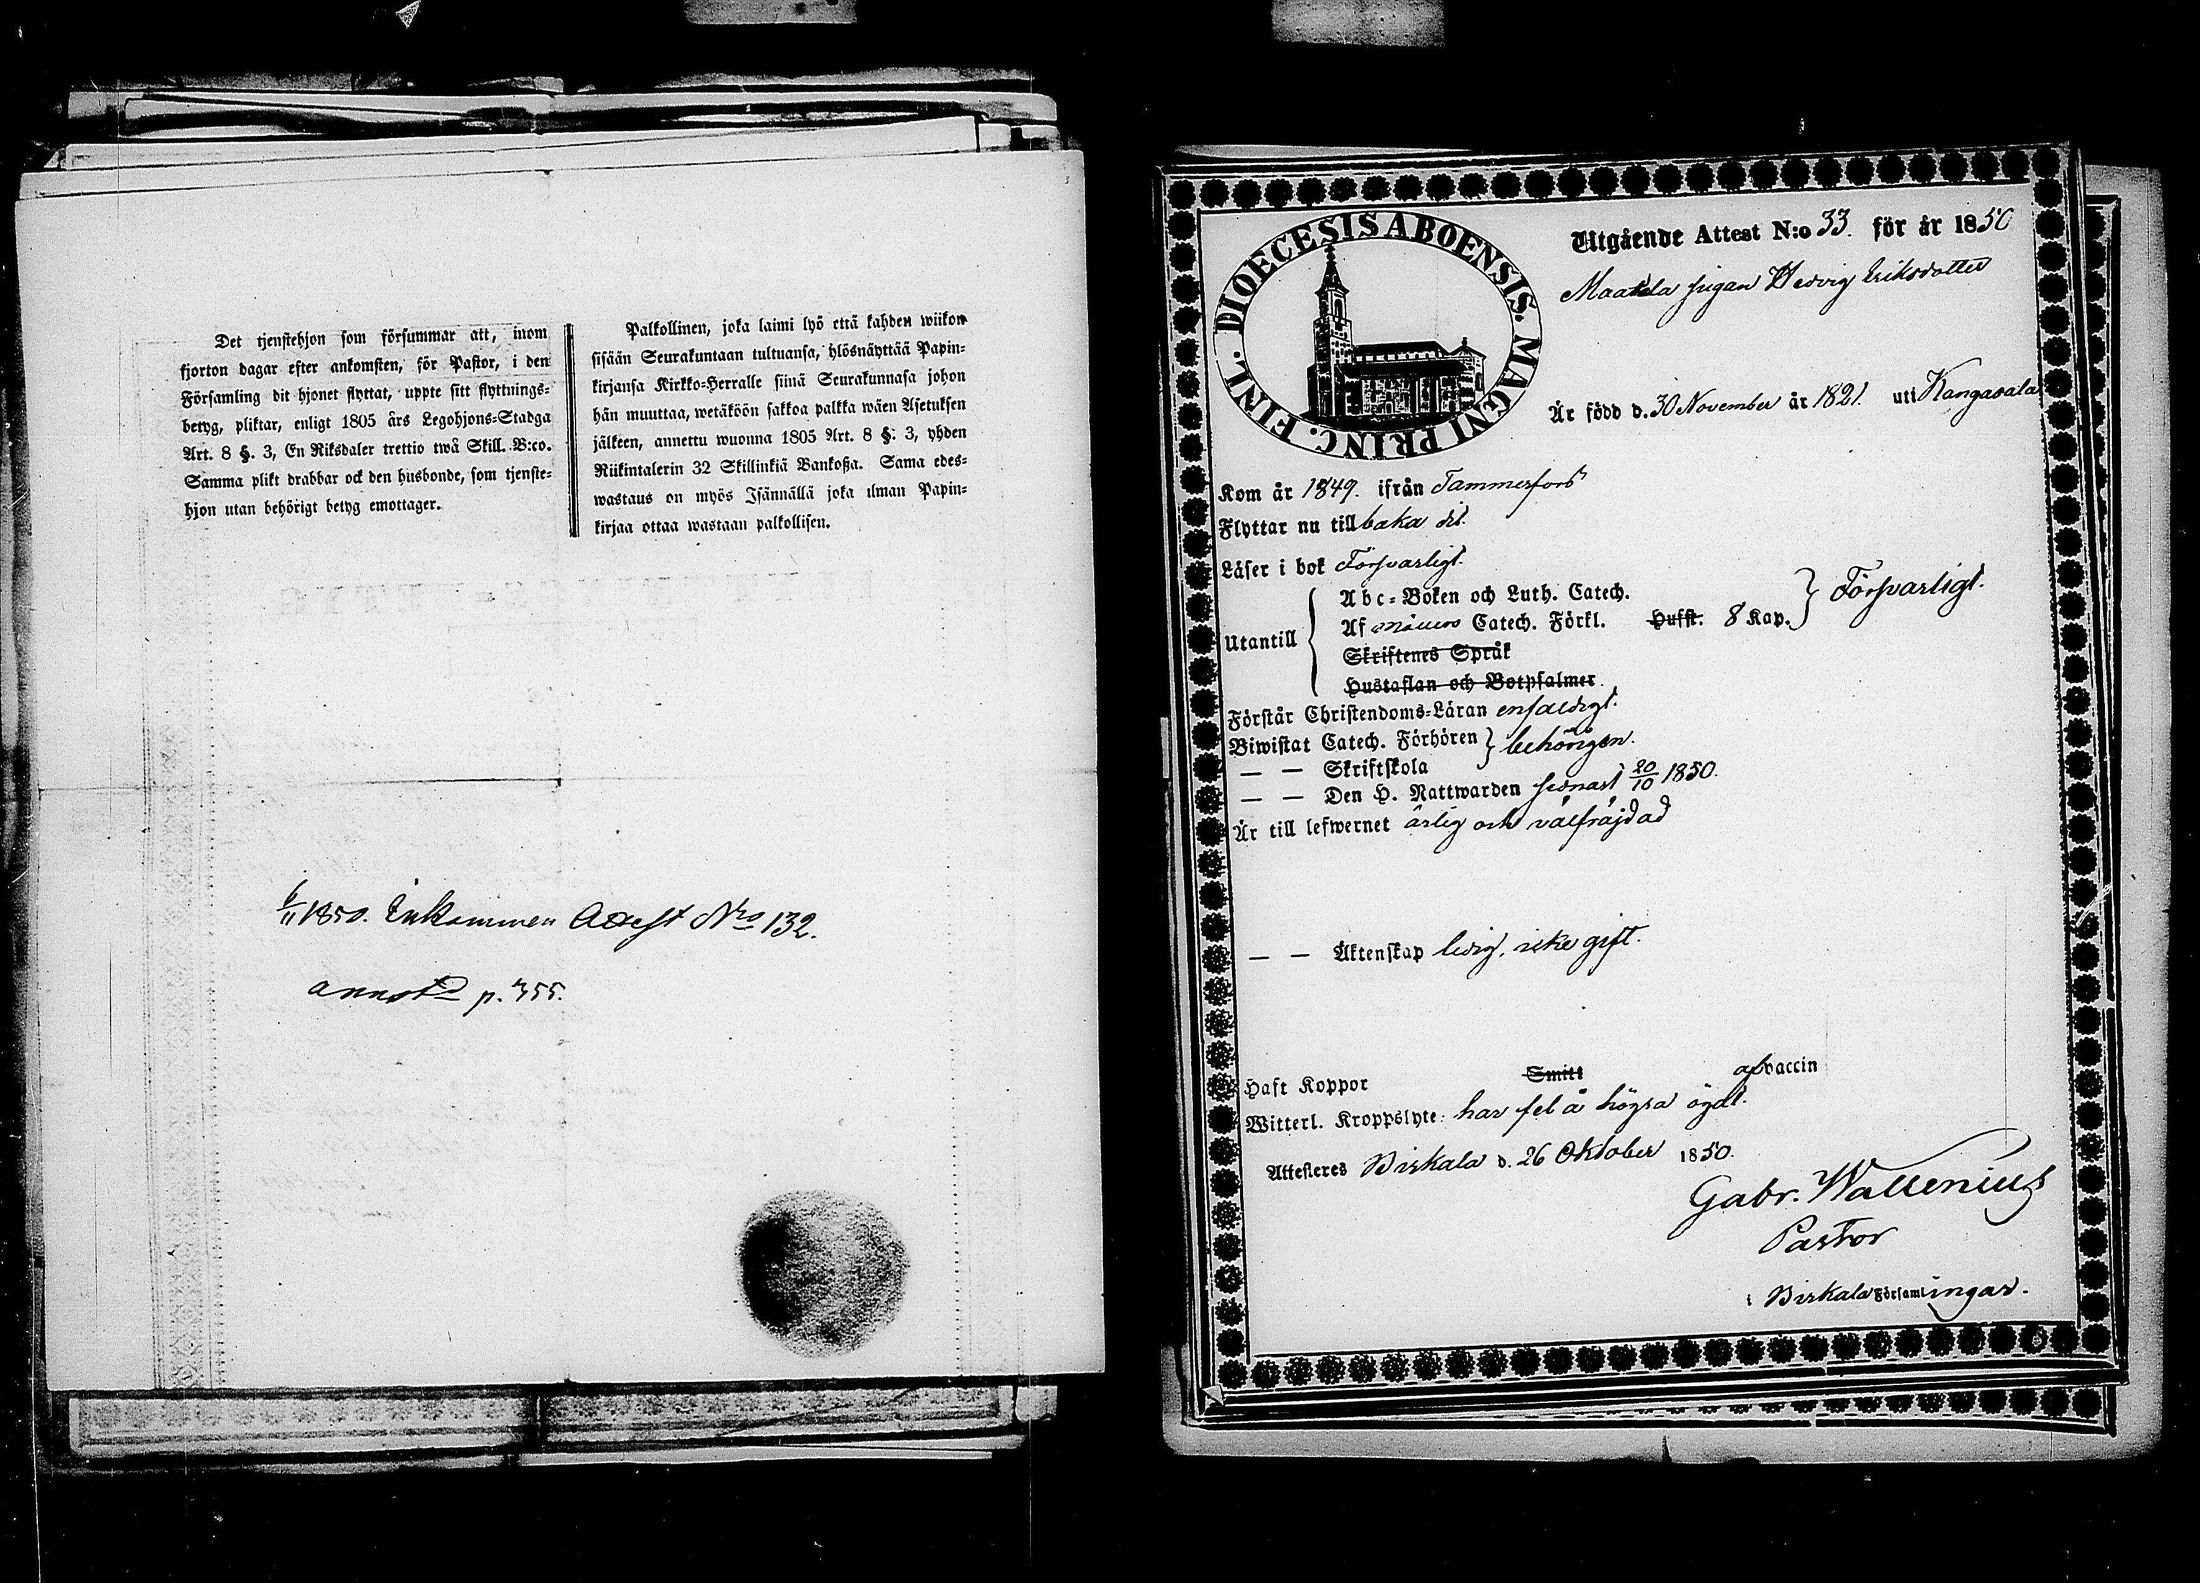 Det tjenstehjon som försummar att, inom
fjorton dagar efter ankomsten, för Pastor, i den
Församling dit hjonet flyttat, uppte sitt flyttnings-
betyg, pliktar, enligt 1805 års Legohjons-Stadga
Art. 8 §. 3, En Riksdaler trettio twå Skill. B:co.
Samma plikt drabbar ock den husbonde, som tjenste-
hjon utan behörigt betyg emottager.
Palkollinen, joka laimi lyö että kahden wiikon
sisään Seurakuntaan tultuansa, ylösnäyttää Papin-
kirjansa Kirkko-Herralle siinä Seurakunnasa johon
hän muuttaa, wetäköön sakkoa palkka wäen Asetuksen
jälkeen, annettu wuonna 1805 Art. 8 §. 3, yhden
Riikintalerin 32 Skillinkiä Bankoßa. Sama edes-
wastaus on myös Isännällä joka ilman Papin-
kirjaa ottaa wastaan palkollisen.
1850. Inkommen Attest No 132.
annotd p. 355.
DIOECESIS ABOENSIS. MAGNI PRINC. FINL.
Utgående Attest N:o 33. för år 1850
Maakala pigan Hedvig Eriksdotter
Är född d. 30 November år 1821. uti Kangasala
Kom år 1849. ifrån Tammerfors
Flyttar nu till baka dit.
Läser i bok Försvarligt.
Utantill
Abc-Boken och Luth. Catech.
Af Möllers Catech. Förkl. Hufst. 8 Kap. Försvarligt.
Skriftenes Språk
Hustaflan och Botpsalmer.
Förstår Christendoms-Läran enfaldigt.
Biwistat Catech. Förhören behörigen.
— — Skriftskola
— — Den H. Nattwarden sednast 20/10 1850.
Är till lefwernet ärlig och välfräjdad
— — Äktenskap ledig, icke gift.
Haft Koppor Smitt af vaccin
Witterl. Kroppslyte: har fel å högra ögat.
Attesteres Birkala d. 26 Oktober 1850.
Gabr. Wallenius
Pastor
i Birkala Församlingar.